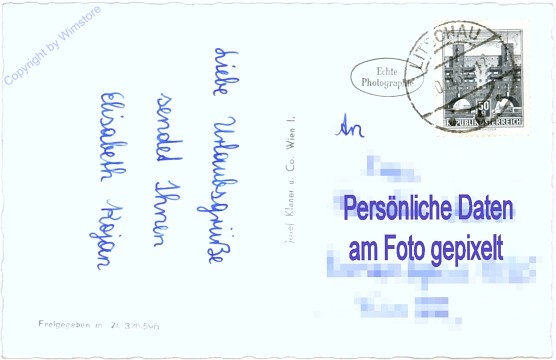 Copyright by Wimstore
Liebe Urlaubsgrüße
sendet Ihnen
Elisabeth Kojan
Echte
Photographie
LITSCHAU
50
REPUBLIK ÖSTERREICH
An
Persönliche Daten
am Foto gepixelt
Josef Klaner u. Co. Wien I.
Freigegeben m. Zl.